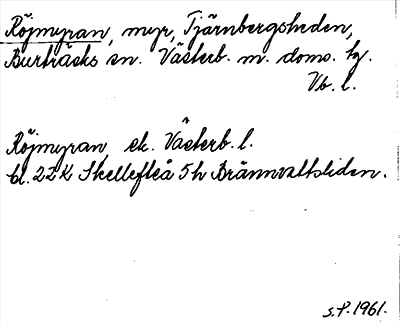 Röjmyran, myr, Tjärnbergsheden,
Burträsks sn. Västerb. m. doms. tg.
Vb. l.
Röjmyran, ek. Västerb. l.
bl. 22K Skellefteå 5h Brännvaltsliden.
S.P. 1961.